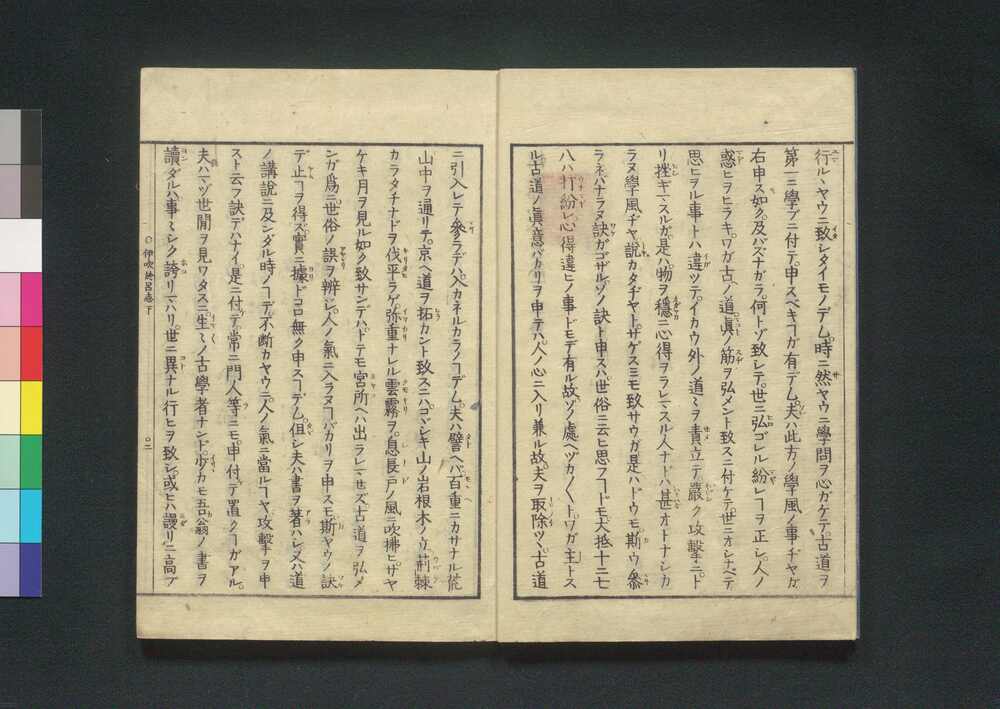 行ルヽヤウニ致レタイモノデム。時ニ然ヤウニ學問ヲ心ガケテ。古道ヲ
第一ニ學ブニ付テ。申スベキヿガ有デム。夫ハ此方ノ學風ノ事ヂヤガ
右申ス如ク。及バズナガラ。何トゾ致シテ。世ニ弘ゴレル紛レヿヲ正シ。人ノ
惑ヒヲヒラキ。ワガ古ノ道眞ノ筋ヲ弘メント致スニ付ケテ。世ニオシナベテ
思ヒヲル事トハ違ツテ。イカウ外ノ道〻ヲ責立テ。嚴ク攻擊ニ。ド
リ挫ギマスルガ。是ハ物ヲ穩ニ心得ヲラレマスル人ナドハ。甚オトナシカ
ラヌ學風ヂヤ。說カタヂヤト。サゲスミモ致サウガ。是ハドウモ斯ウ參
ラネバナラヌ訣ガゴザル。ソノ訣ト申スハ。世俗ニ云ヒ思フヿドモ。大抵十ニ七
八ハ打紛レ。心得違ヒノ事ドモデ有ル故。ソノ處ヘヅカ〱ト。ワガ主トス
ル古道ノ眞意バカリヲ申テハ。人ノ心ニ入リ兼ル故。夫ヲ取除ツヽ。古道
ニ引入レテ參ラデハ。入カネルカラノヿデム。夫ハ譬ヘバ。百重ニカサナル荒
山中ヲ通リテ。京ヘ道ヲ拓カント致スニハ。コヾシキ山ノ岩根木ノ立。荊棘
カラタチナドヲ伐平ラゲ。弥重ナレル雲霧ヲ。息長戸ノ風ニ吹拂ヒ。サヤ
ケキ月ヲ見ル如ク致サンデハ。トテモ宮所ヘハ出ラレマセズ。古道ヲ弘メ
ンガ爲ニ。世俗ノ誤ヲ辨ジ。人ノ氣ニ入ラヌヿバカリヲ申スモ。斯ヤウノ訣
デ。止ヿヲ得ズ。實ニ據ドコロ無ク申スヿデム。但シ夫ハ書ヲ著ハシ。又ハ道
ノ講說ニ及ンダル時ノヿデ。不斷カヤウニ。人ノ氣ニ當ルヿヤ。攻擊ヲ申
スト云フ訣デハナイ。是ニ付テ。常ニ門人等ニモ。申付テ置クヿガアル。
夫ハマヅ世閒ヲ見ワタスニ。生〻ノ古學者ナンド。少カモ吾翁ノ書ヲ
讀ダルハ。事〻シク誇リマハリ。世ニ異ナル行ヒヲ致シ。或ヒハ謾リニ高ブ
〇伊吹於呂志下
〇二